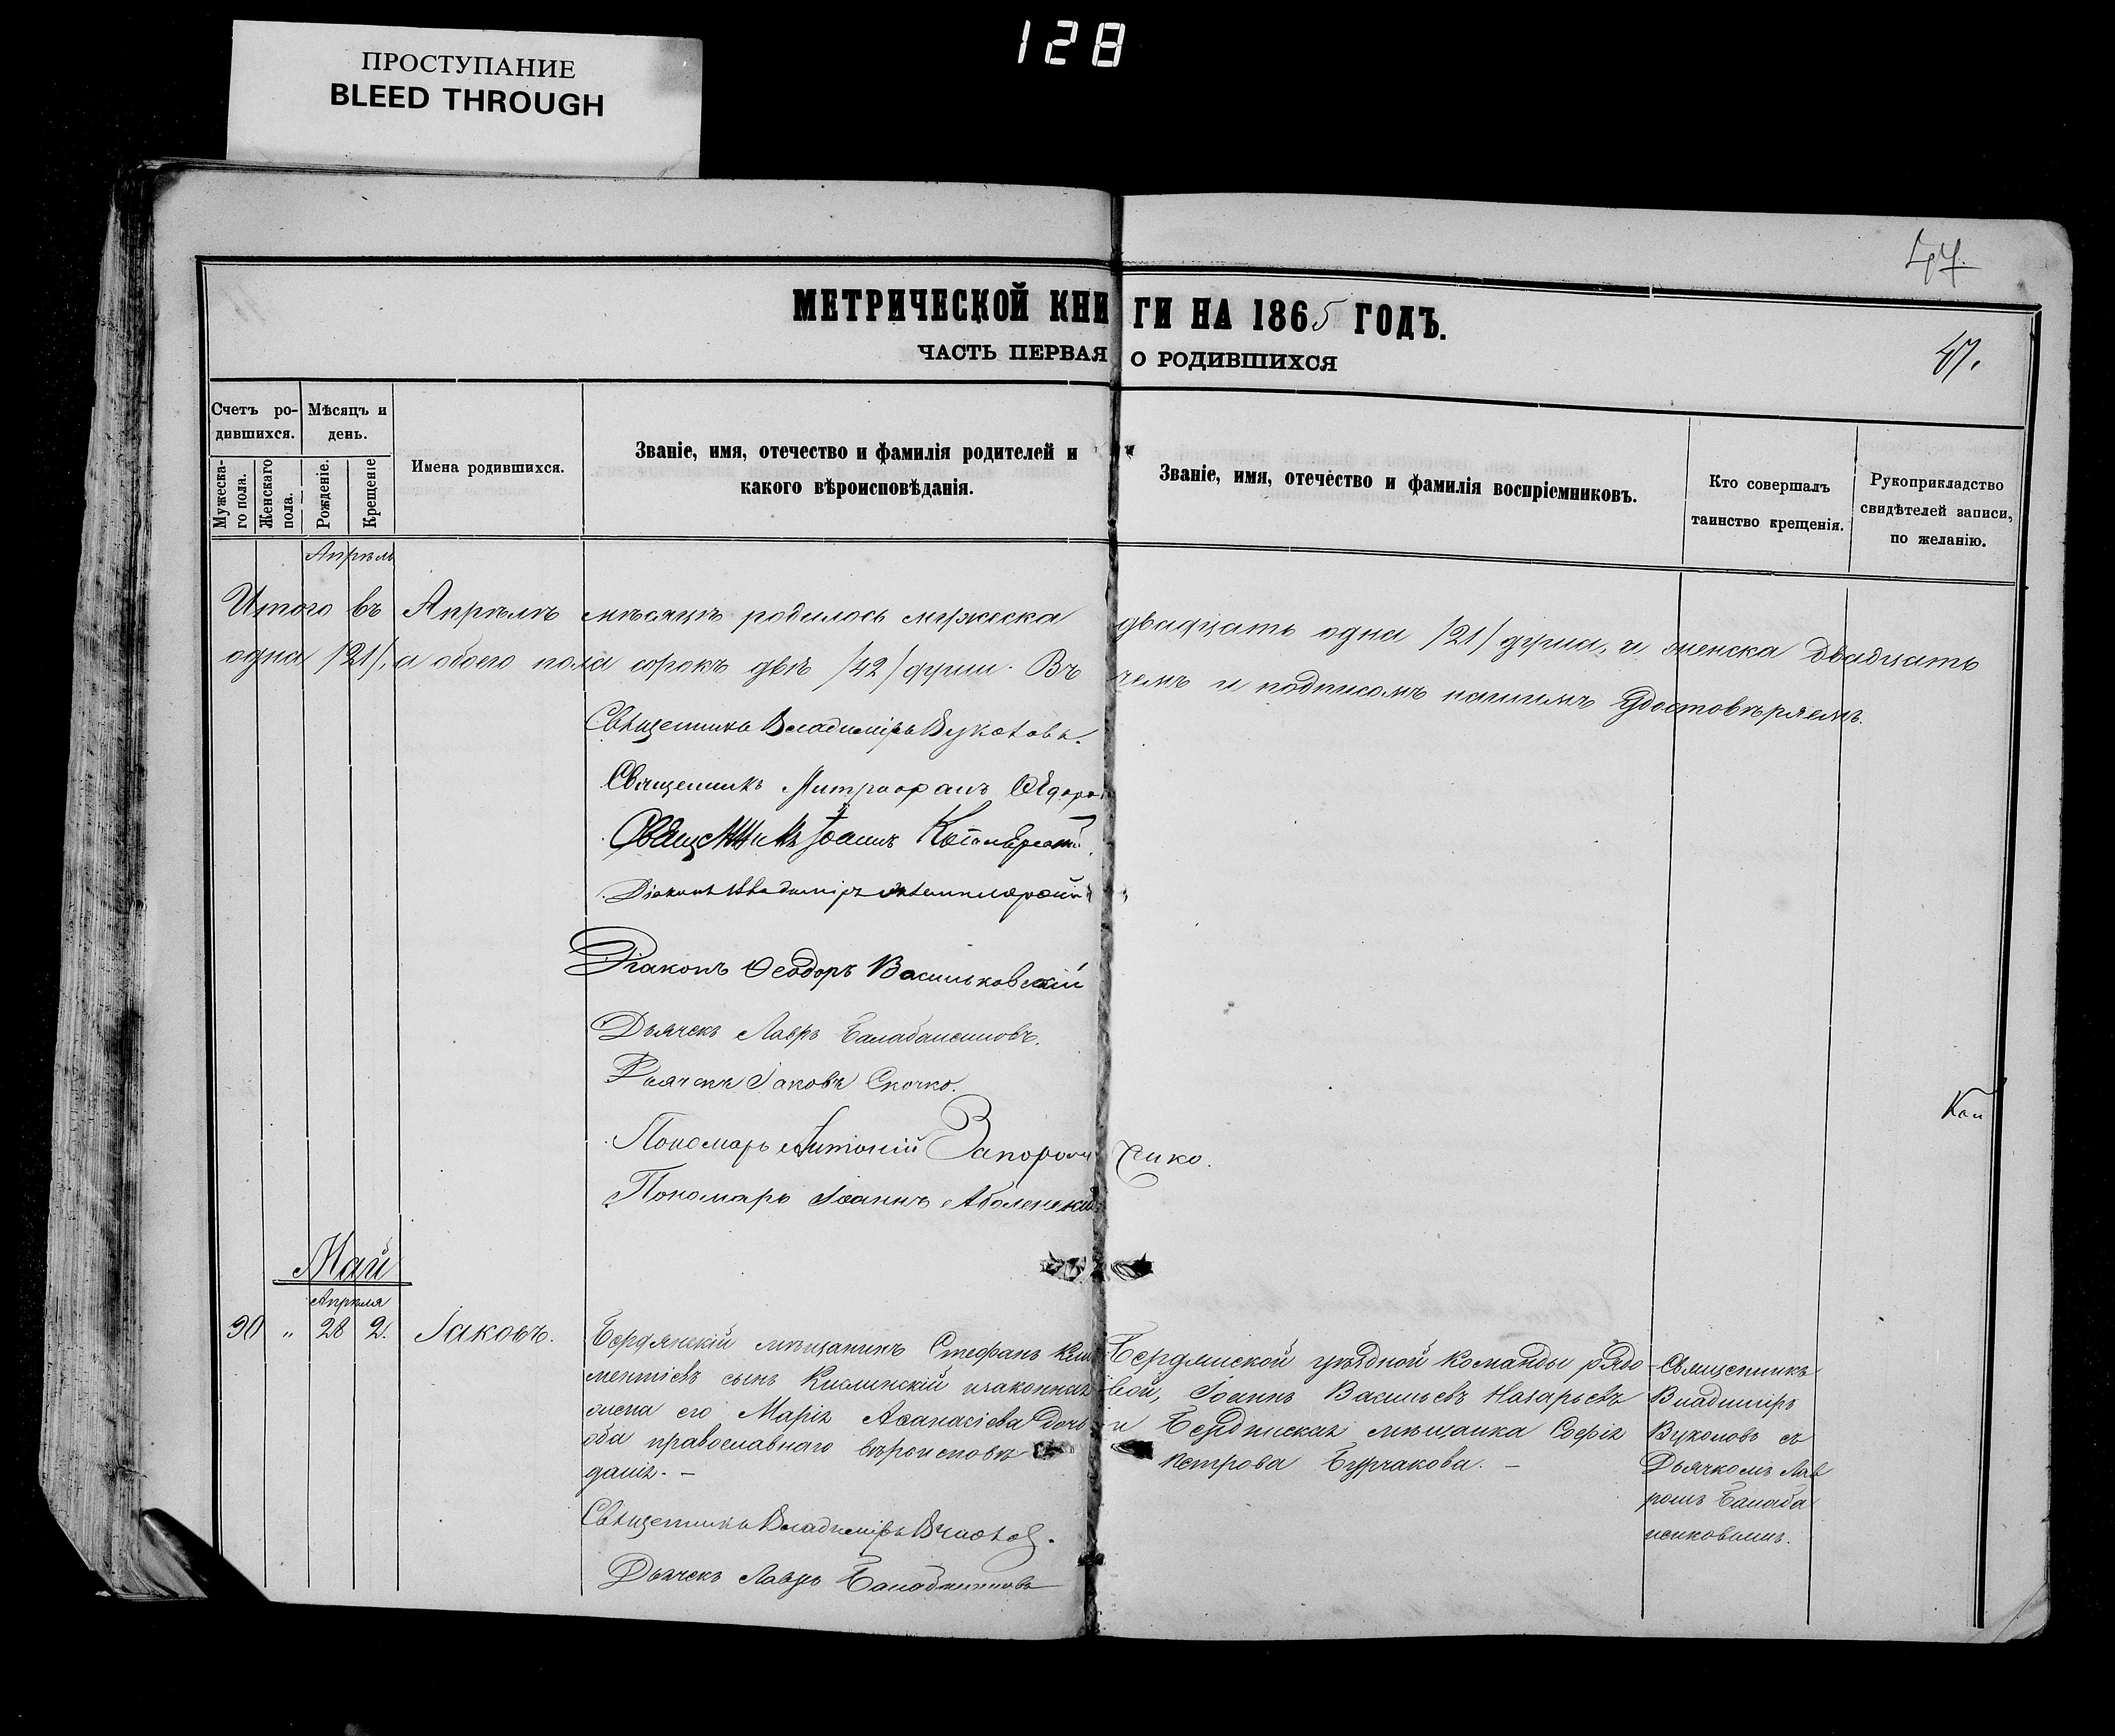 128
ПРОСТУПАНИЕ
BLEED THROUGH
47.
МЕТРИЧЕСКОЙ КНИГИ НА 1865 ГОДЪ.
47.
ЧАСТЬ ПЕРВАЯ О РОДИВШИХСЯ
Счетъ ро-
дившихся.
Мужеска-
го пола.
Женскаго
пола.
Мѣсяцъ и
день.
Рожденіе.
Крещеніе
Имена родившихся.
Званіе, имя, отечество и фамилія родителей и
какого вѣроисповѣданія.
Званіе, имя, отечество и фамилія воспріемниковъ.
Кто совершалъ
таинство крещенія.
Рукоприкладство
свидѣтелей записи,
по желанію.
Апрѣль
Итого въ Апрѣлѣ мѣсяцѣ родилось мужеска двадцать одна /21/ душа, и женска двадцать
одна /21/, а обоего пола сорокъ двѣ /42/ души. Въ чемъ и подписомъ нашимъ удостовѣряемъ.
Священникъ Владиміръ Вуколовъ.
Священникъ Митрофанъ
Священникъ Іоаннъ
Діаконъ Владиміръ
Діаконъ Ѳеодоръ Васильковскій
Дьячекъ Лавръ Балабаненковъ.
Дьячекъ Іаковъ Скочко.
Пономарь Антоній
Пономарь Іоаннъ Аболенскій
Май
Апрѣля
30 " 28 2. Іаковъ.
Бердянскій мѣщанинъ Стефанъ Кли
ментіевъ сынъ Кислинскій и законная
жена его Марія Аѳанасіева дочь
оба православнаго вѣроисповѣ
данія. —
Священникъ Владиміръ Вуколовъ.
Дьячекъ Лавръ Балабаненковъ
Бердянской уѣздной команды рядо
вой, Іоаннъ Васильевъ Назарьевъ
и Бердянская мѣщанка Софія
Петрова Бурчакова. —
Священникъ
Владиміръ
Вуколовъ съ
Дьячкомъ Лав
ромъ Балаба
ненковымъ.